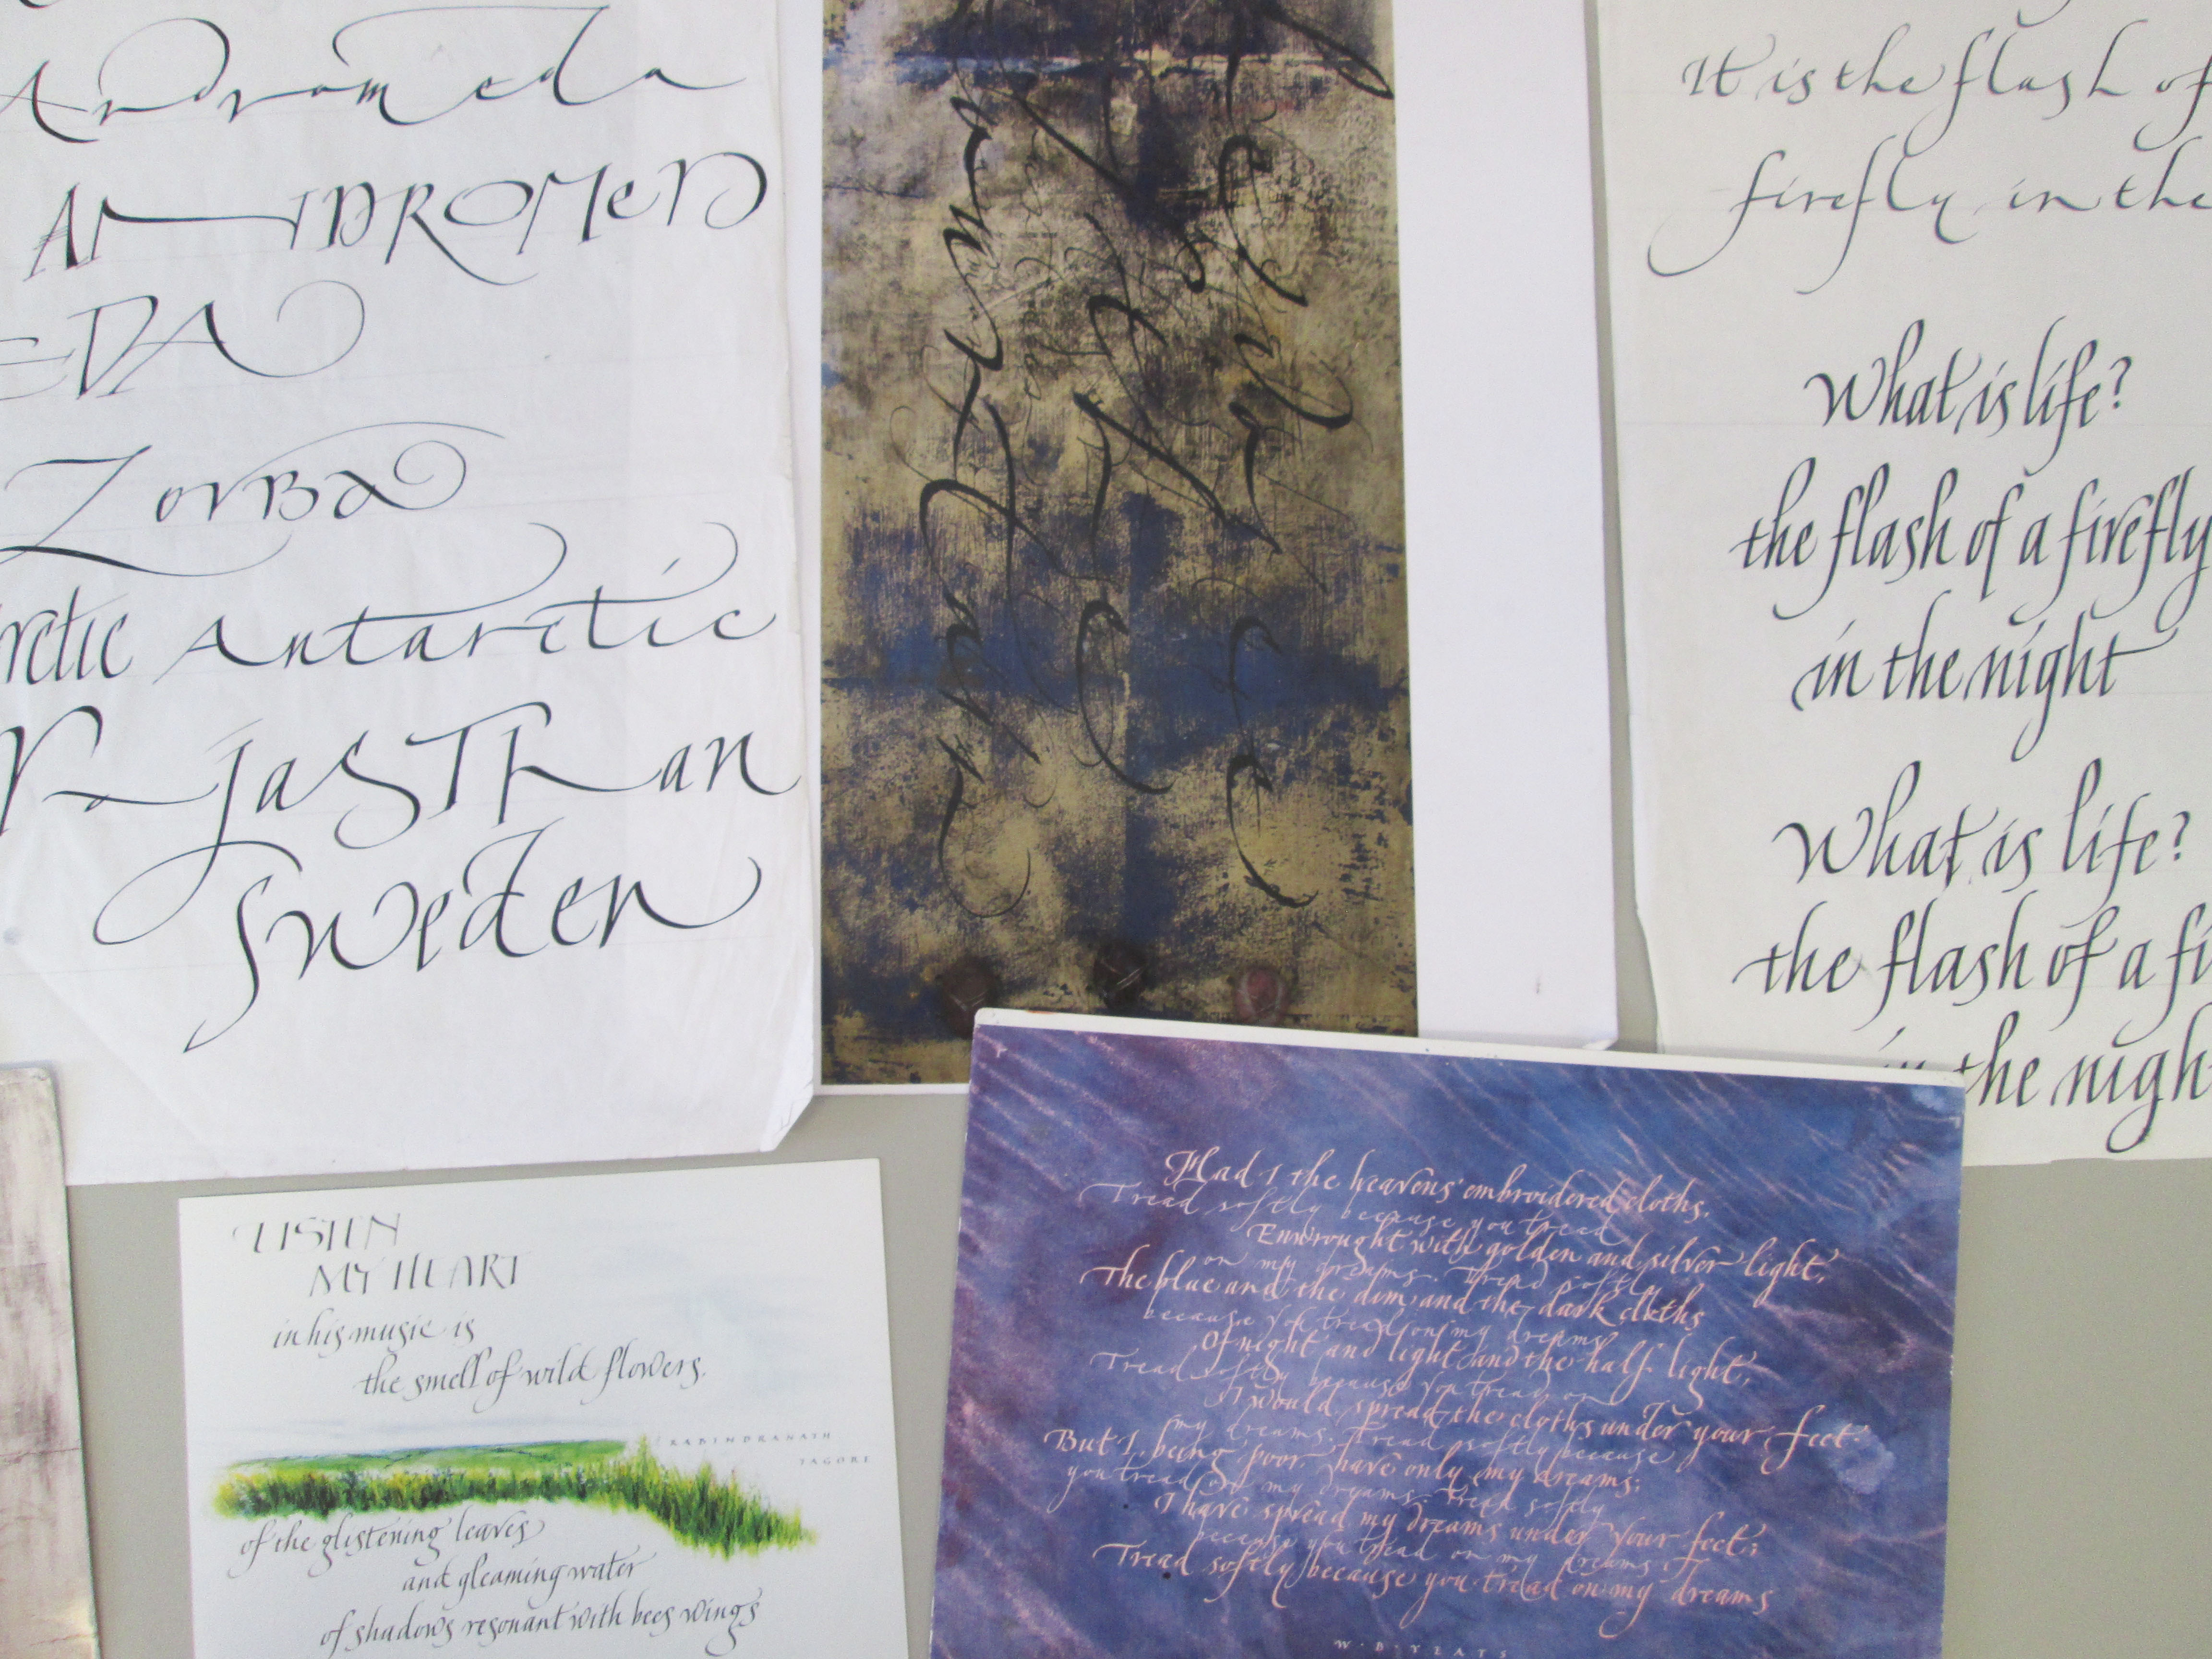 Andromeda
ANDROMED
EDA
Zorba
rctic Antarctic
Rajasthan
Sweden
It is the flash of
firefly in the
What is life?
the flash of a firefly
in the night
What is life?
the flash of a fi
in the nigh
LISTEN
MY HEART
in his music is
the smell of wild flowers,
RABINDRANATH
TAGORE
of the glistening leaves
and gleaming water
of shadows resonant with bees wings
Had I the heavens' embroidered cloths,
Tread softly because you tread
Enwrought with golden and silver light,
on my dreams. Tread softly
The blue and the dim and the dark cloths
because you tread on my dreams
Of night and light and the half-light,
Tread softly because you tread on
I would spread the cloths under your feet:
my dreams. Tread softly because
But I, being poor, have only my dreams;
you tread on my dreams. Tread softly
I have spread my dreams under your feet;
because you tread on my dreams
Tread softly because you tread on my dreams
W·B·YEATS